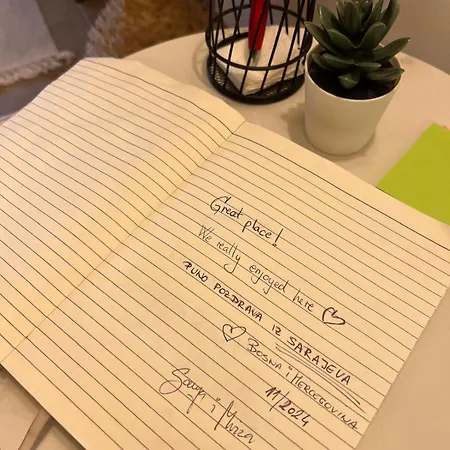 Great place!
We really enjoyed here ♡
PUNO POZDRAVA IZ SARAJEVA
♡ BOSNA i HERCEGOVINA
11/2024
i Mirza